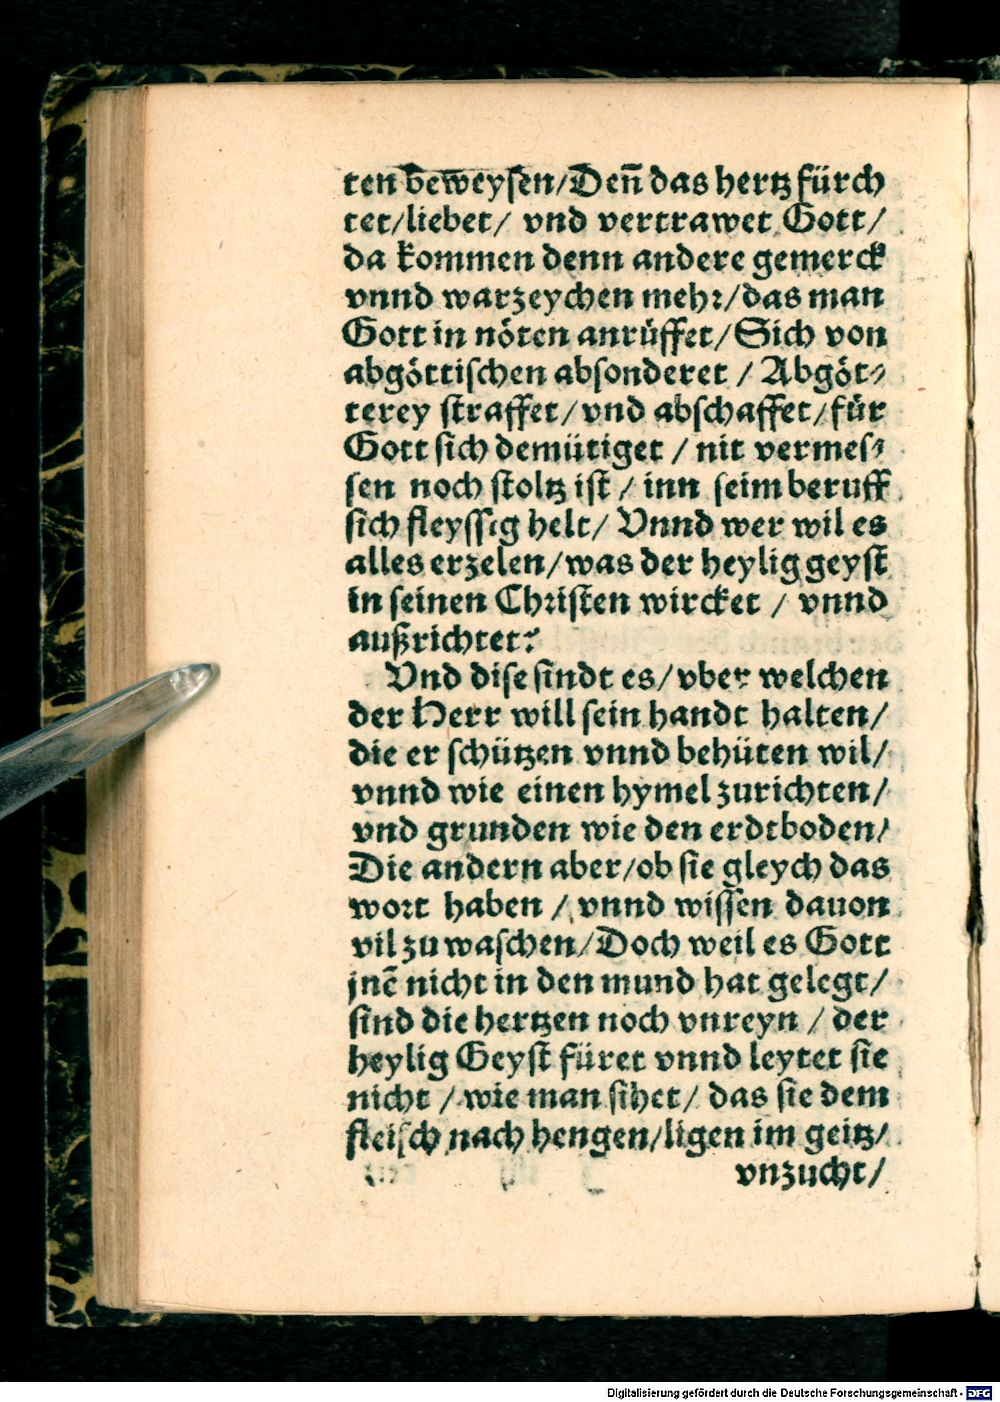 ten beweysen/Deñ das hertz fürch
tet/liebet/ vnd vertrawet Gott/
da kommen denn andere gemerck
vnnd warzeychen mehr/das man
Gott in nöten anrüffet/Sich von
abgöttischen absonderet / Abgöt⸗
terey straffet/vnd abschaffet/für
Gott sich demütiget / nit vermes⸗
sen noch stoltz ist / inn seim beruff
sich fleyssig helt/ Vnnd wer wil es
alles erzelen/was der heylig geyst
in seinen Christen wircket / vnnd
außrichtet?
Vnd dise sindt es/vber welchen
der Herr will sein handt halten/
die er schützen vnnd behüten wil/
vnnd wie einen hymel zurichten/
vnd grunden wie den erdtboden/
Die andern aber/ob sie gleych das
wort haben / vnnd wissen dauon
vil zu waschen/Doch weil es Gott
jnẽ nicht in den mund hat gelegt/
sind die hertzen noch vnreyn / der
heylig Geyst füret vnnd leytet sie
nicht / wie man sihet/ das sie dem
fleisch nach hengen/ligen im geitz/
vnzucht/
Digitalisierung gefördert durch die Deutsche Forschungsgemeinschaft - DFG